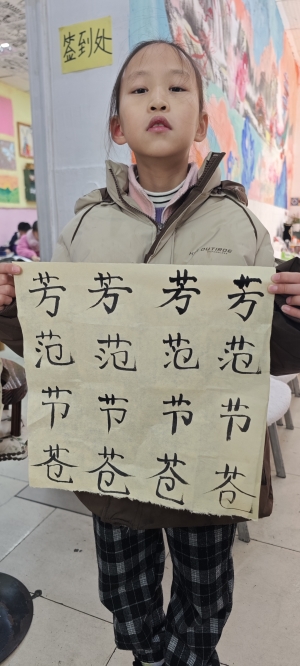 签到处
芳 芳 芳 芳
范 范 范 范
节 节 节 节
苍 苍 苍 苍